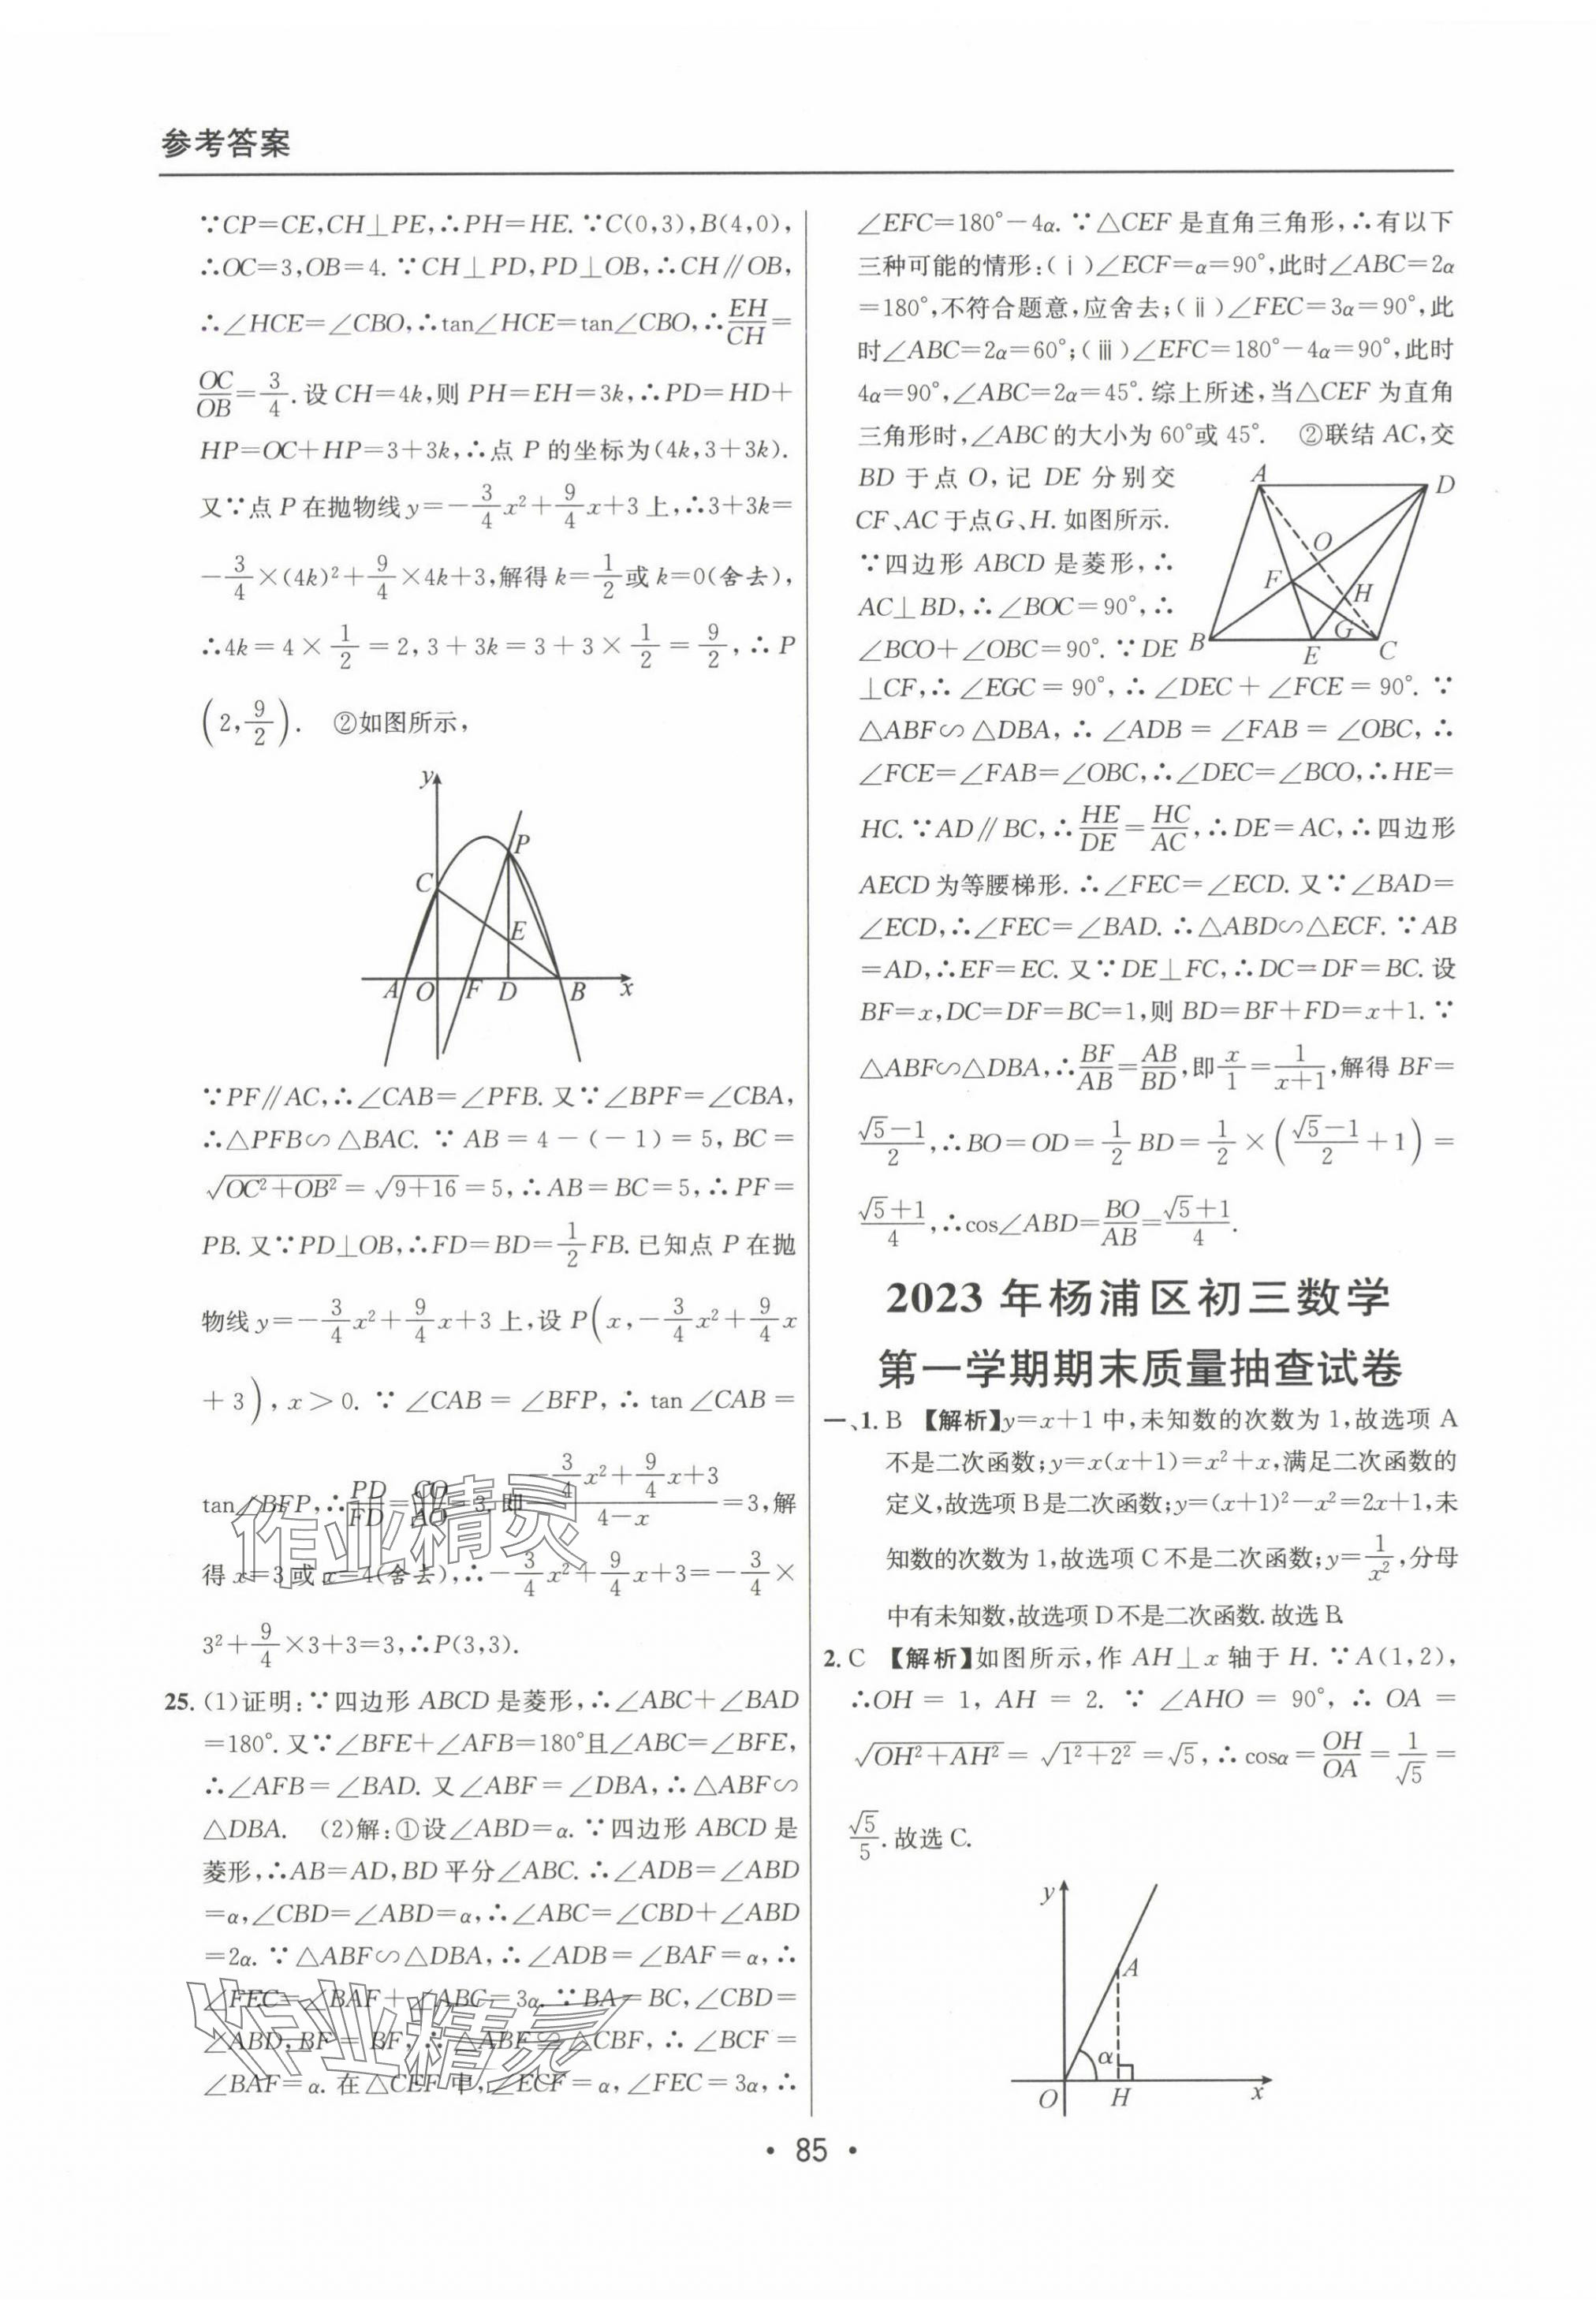 参考答案
∵CP=CE,CH⊥PE,∴PH=HE.∵C(0,3),B(4,0),
∴OC=3,OB=4.∵CH⊥PD,PD⊥OB,∴CH∥OB,
∴∠HCE=∠CBO,∴tan∠HCE=tan∠CBO,∴EH/CH=
OC/OB=3/4.设CH=4k,则PH=EH=3k,∴PD=HD+
HP=OC+HP=3+3k,∴点P的坐标为(4k,3+3k).
又∵点P在抛物线y=-3/4x²+9/4x+3上,∴3+3k=
-3/4×(4k)²+9/4×4k+3,解得k=1/2或k=0(舍去),
∴4k=4×1/2=2,3+3k=3+3×1/2=9/2,∴P
(2,9/2). ②如图所示,
y
P
C
E
A O F D B x
∵PF∥AC,∴∠CAB=∠PFB.又∵∠BPF=∠CBA,
∴△PFB∽△BAC.∵AB=4-(-1)=5,BC=
√(OC²+OB²)=√(9+16)=5,∴AB=BC=5,∴PF=
PB.又∵PD⊥OB,∴FD=BD=1/2FB.已知点P在抛
物线y=-3/4x²+9/4x+3上,设P(x,-3/4x²+9/4x
+3),x>0.∵∠CAB=∠BFP,∴tan∠CAB=
tan∠BFP,∴PD/FD=CO/AO=3,即(-3/4x²+9/4x+3)/(4-x)=3,解
得x=3或x=4(舍去),∴-3/4x²+9/4x+3=-3/4×
3²+9/4×3+3=3,∴P(3,3).
25.(1)证明:∵四边形ABCD是菱形,∴∠ABC+∠BAD
=180°.又∵∠BFE+∠AFB=180°且∠ABC=∠BFE,
∴∠AFB=∠BAD.又∠ABF=∠DBA,∴△ABF∽
△DBA. (2)解:①设∠ABD=α.∵四边形ABCD是
菱形,∴AB=AD,BD平分∠ABC.∴∠ADB=∠ABD
=α,∠CBD=∠ABD=α,∴∠ABC=∠CBD+∠ABD
=2α.∵△ABF∽△DBA,∴∠ADB=∠BAF=α,∴
∠FEC=∠BAF+∠ABC=3α.∵BA=BC,∠CBD=
∠ABD,BF=BF,∴△ABF≌△CBF,∴∠BCF=
∠BAF=α.在△CEF中,∠ECF=α,∠FEC=3α,∴
作业精灵
作业精灵
∠EFC=180°-4α.∵△CEF是直角三角形,∴有以下
三种可能的情形:(ⅰ)∠ECF=α=90°,此时∠ABC=2α
=180°,不符合题意,应舍去;(ⅱ)∠FEC=3α=90°,此
时∠ABC=2α=60°;(ⅲ)∠EFC=180°-4α=90°,此时
4α=90°,∠ABC=2α=45°.综上所述,当△CEF为直角
三角形时,∠ABC的大小为60°或45°. ②联结AC,交
BD于点O,记DE分别交
CF、AC于点G、H.如图所示.
∵四边形ABCD是菱形,∴
AC⊥BD,∴∠BOC=90°,∴
∠BCO+∠OBC=90°.∵DE
A D
O
F H
G
B E C
⊥CF,∴∠EGC=90°,∴∠DEC+∠FCE=90°.∵
△ABF∽△DBA,∴∠ADB=∠FAB=∠OBC,∴
∠FCE=∠FAB=∠OBC,∴∠DEC=∠BCO,∴HE=
HC.∵AD∥BC,∴HE/DE=HC/AC,∴DE=AC,∴四边形
AECD为等腰梯形.∴∠FEC=∠ECD.又∵∠BAD=
∠ECD,∴∠FEC=∠BAD.∴△ABD∽△ECF.∵AB
=AD,∴EF=EC.又∵DE⊥FC,∴DC=DF=BC.设
BF=x,DC=DF=BC=1,则BD=BF+FD=x+1.∵
△ABF∽△DBA,∴BF/AB=AB/BD,即x/1=1/(x+1),解得BF=
(√5-1)/2,∴BO=OD=1/2BD=1/2×((√5-1)/2+1)=
(√5+1)/4,∴cos∠ABD=BO/AB=(√5+1)/4.
2023年杨浦区初三数学
第一学期期末质量抽查试卷
一、1.B 【解析】y=x+1中,未知数的次数为1,故选项A
不是二次函数;y=x(x+1)=x²+x,满足二次函数的
定义,故选项B是二次函数;y=(x+1)²-x²=2x+1,未
知数的次数为1,故选项C不是二次函数;y=1/x²,分母
中有未知数,故选项D不是二次函数.故选B.
2.C 【解析】如图所示,作AH⊥x轴于H.∵A(1,2),
∴OH=1,AH=2.∵∠AHO=90°,∴OA=
√(OH²+AH²)=√(1²+2²)=√5,∴cosα=OH/OA=1/√5=
√5/5.故选C.
y
A
α
O H x
• 85 •